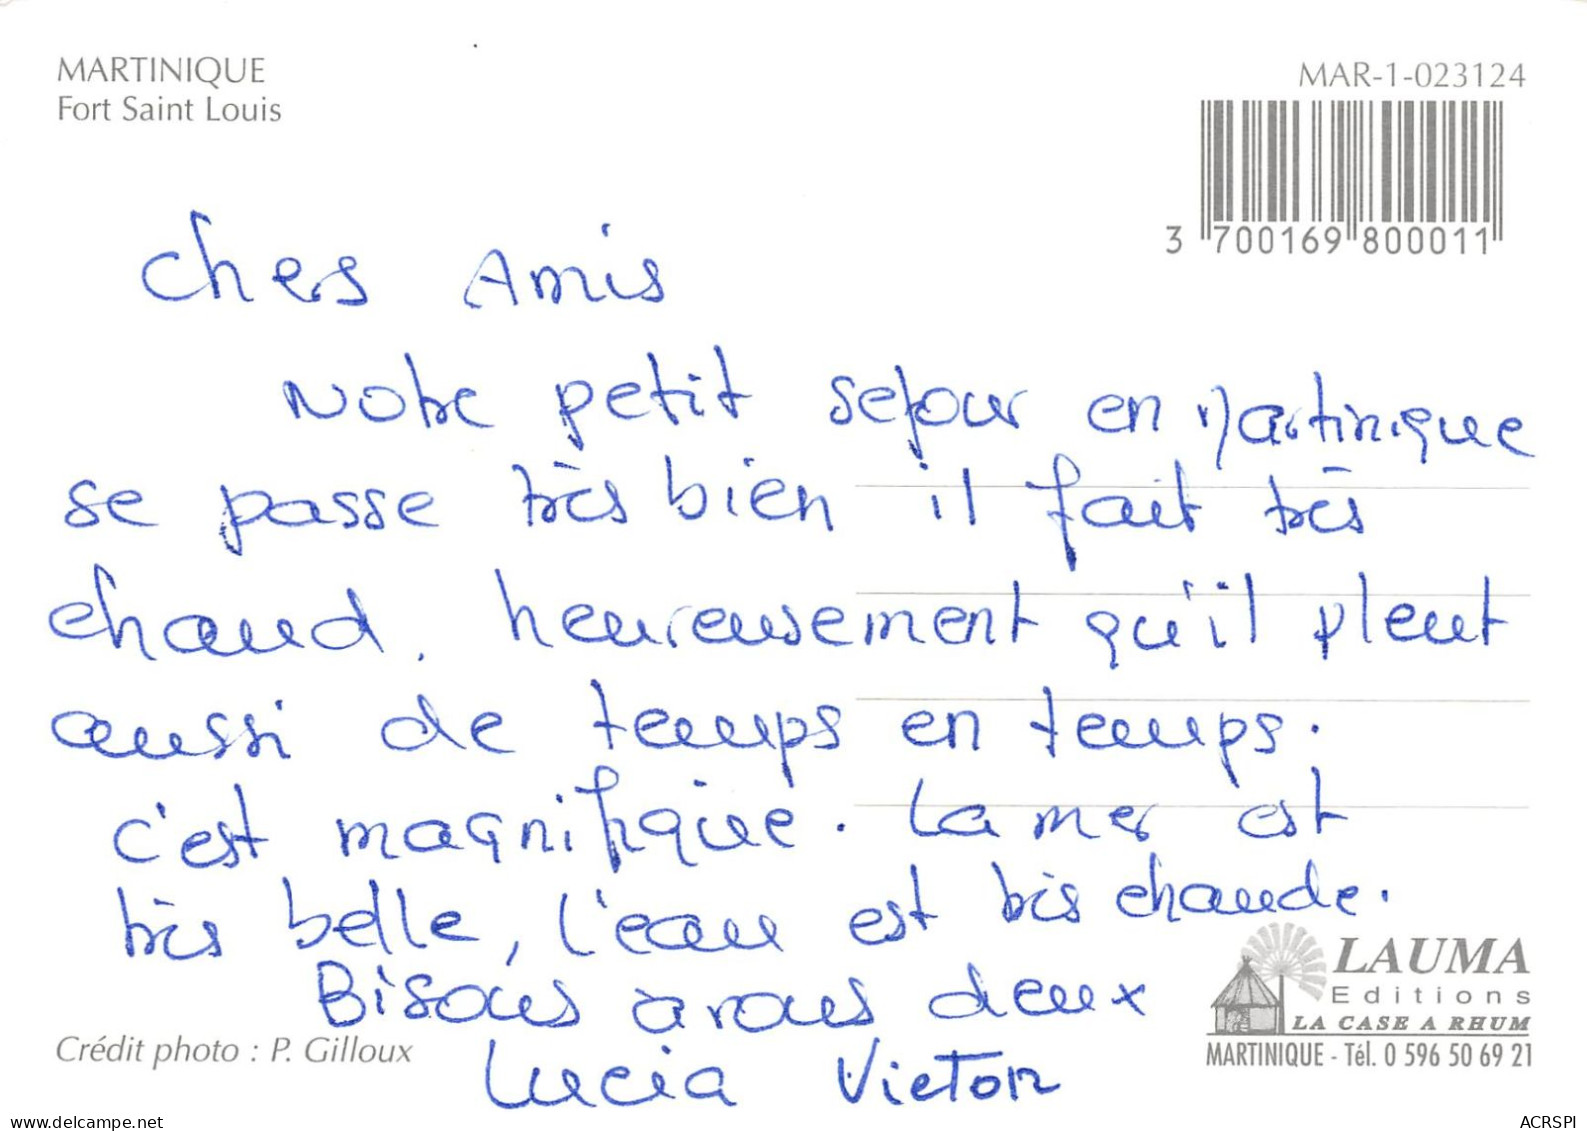 MARTINIQUE
Fort Saint Louis
MAR-1-023124
3 700169 800011
Chers Amis
Notre petit sejour en Martinique
se passe très bien il fait très
chaud, heureusement qu'il pleut
aussi de temps en temps.
c'est magnifique. La mer est
très belle, l'eau est très chaude.
Bisous à vous deux
Lucia Victor
Crédit photo : P. Gilloux
LAUMA
Editions
LA CASE A RHUM
MARTINIQUE - Tél. 0 596 50 69 21
delcampe.net
ACRSPI